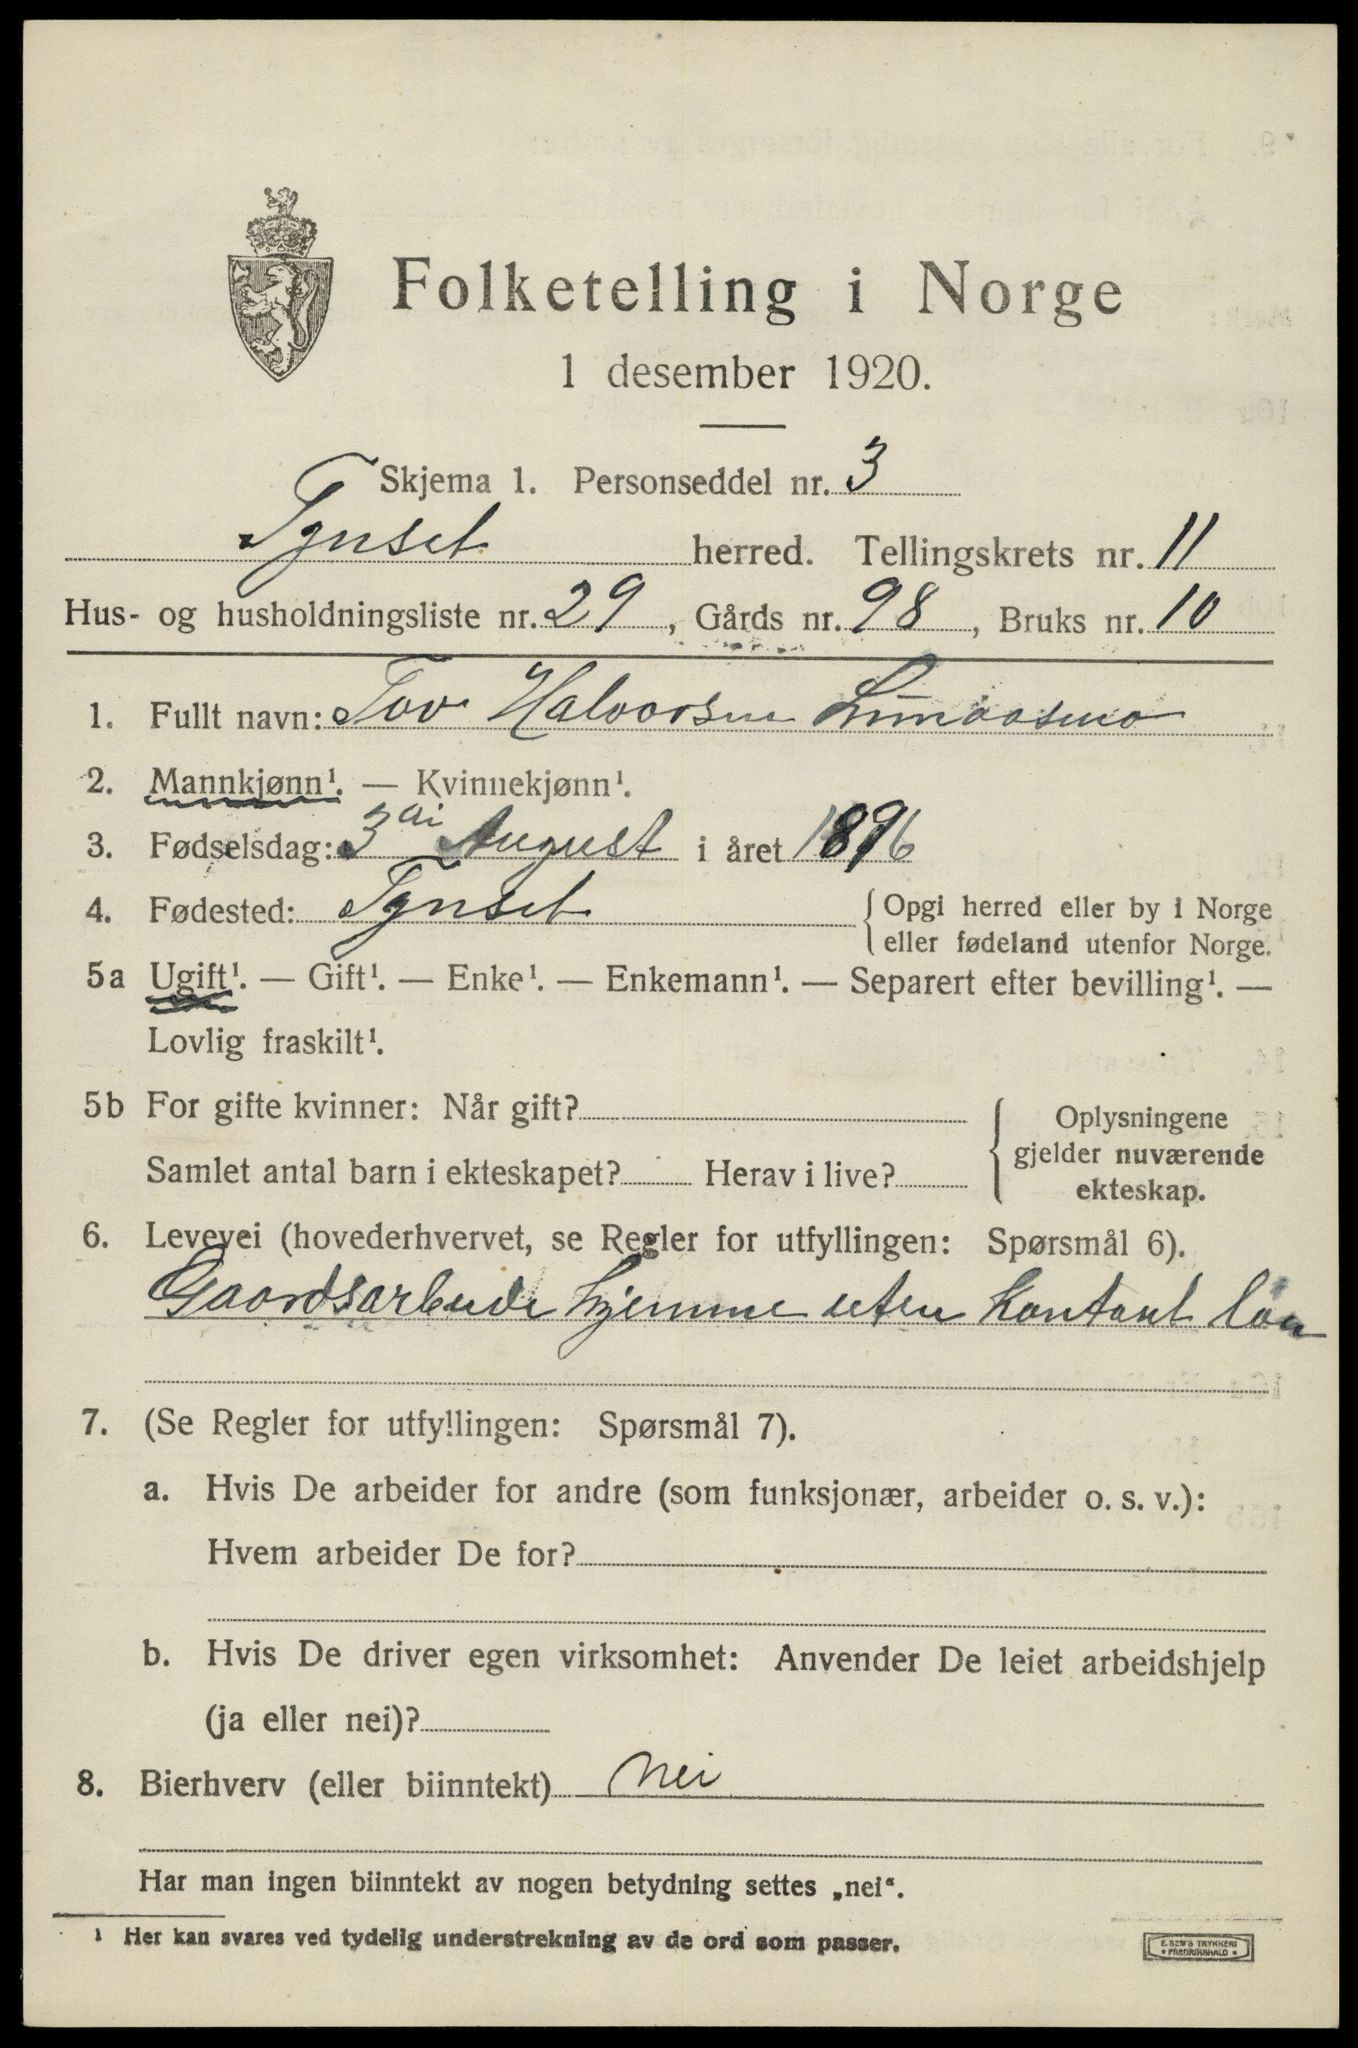 Folketelling i Norge
1 desember 1920.
Skjema 1. Personseddel nr. 3
Tynset herred. Tellingskrets nr. 11
Hus- og husholdningsliste nr. 29, Gårds nr. 98, Bruks nr. 10
1. Fullt navn: Tov Halvorsen
2. Mannkjønn¹. — Kvinnekjønn¹.
3. Fødselsdag: 3di August i året 1896
4. Fødested: Tynset { Opgi herred eller by i Norge
eller fødeland utenfor Norge.
5a Ugift¹. — Gift¹. — Enke¹. — Enkemann¹. — Separert efter bevilling¹. —
Lovlig fraskilt¹.
5b For gifte kvinner: Når gift?
Samlet antal barn i ekteskapet? Herav i live?
{ Oplysningene
gjelder nuværende
ekteskap.
6. Levevei (hovederhvervet, se Regler for utfyllingen: Spørsmål 6).
Gaardsarbeide hjemme uten kontant løn
7. (Se Regler for utfyllingen: Spørsmål 7).
a. Hvis De arbeider for andre (som funksjonær, arbeider o. s. v.):
Hvem arbeider De for?
b. Hvis De driver egen virksomhet: Anvender De leiet arbeidshjelp
(ja eller nei)?
8. Bierhverv (eller biinntekt) Nei
Har man ingen biinntekt av nogen betydning settes „nei“.
¹ Her kan svares ved tydelig understrekning av de ord som passer.
E. SEM'S TRYKKERI
• FREDRIKSHALD •